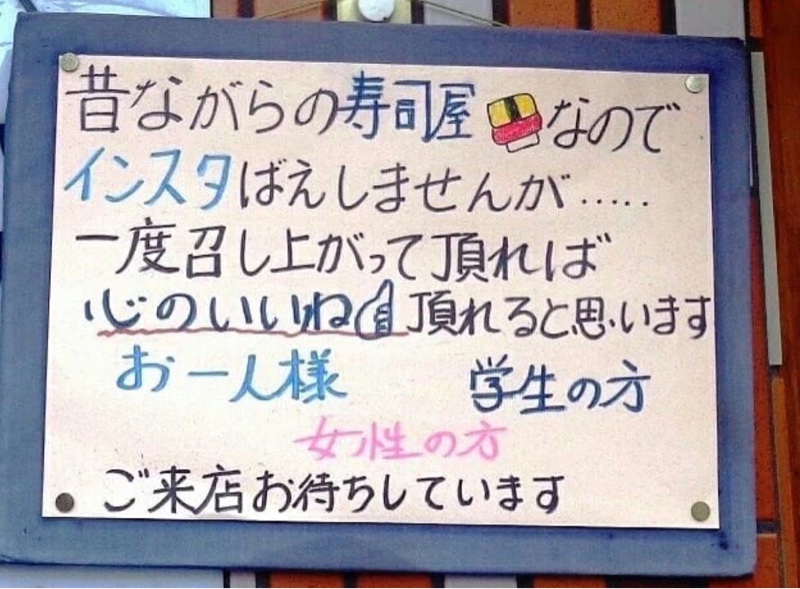 昔ながらの寿司屋なので
インスタばえしませんが.....
一度召し上がって頂ければ
心のいいね頂れると思います
お一人様 学生の方
女性の方
ご来店お待ちしています